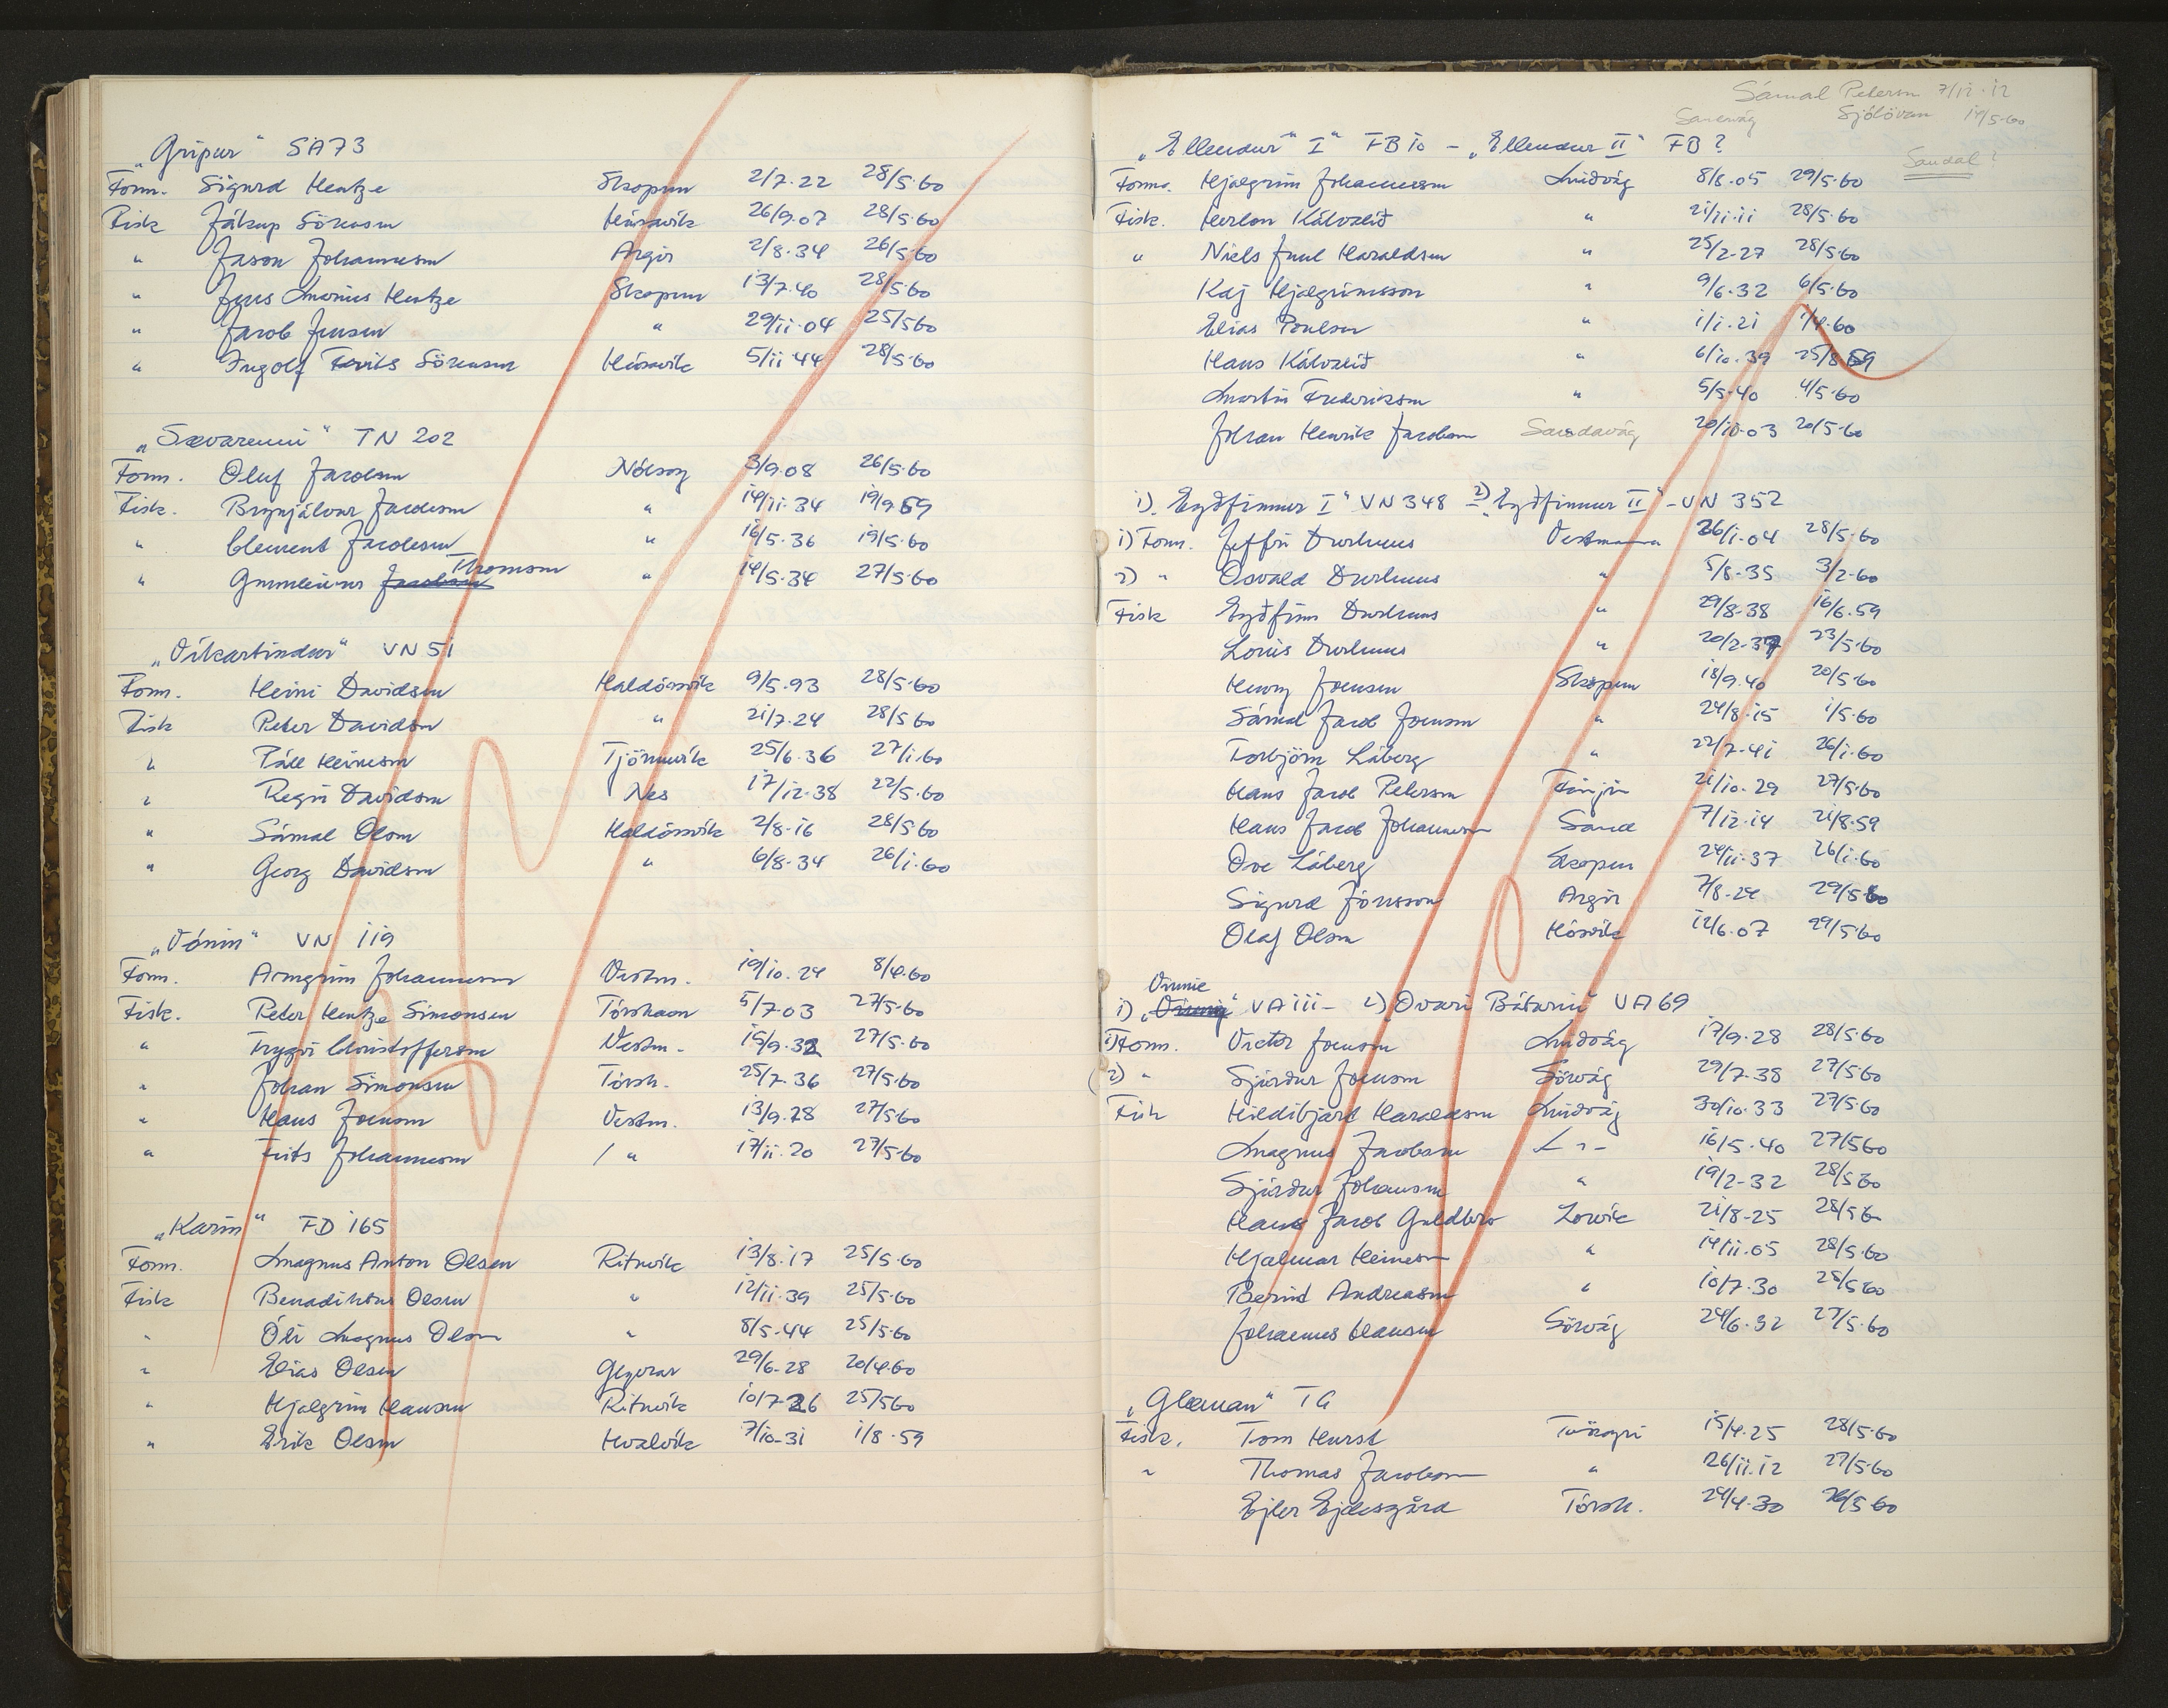 „Gripur“ SA73
Form. Sigurd Hentze Skopun 2/7.22 28/5.60
Fisk Jákup Sörensen Húsavik 26/9.07 28/5.60
" Jason Johannesen Argir 2/8.34 26/5.60
" Jens Marius Hentze Skopun 13/7.40 28/5.60
" Jacob Jensen " 29/11.04 25/5 60
" Ingolf Frits Sörensen Húsavik 5/11.44 28/5.60
„Sævarenni“ TN 202
Form. Oluf Jacobsen Nólsoy 3/9.08 26/5.60
Fisk. Brynjálvur Jacobsen " 14/11.34 19/9 59
" Clement Jacobsen " 16/5.36 19/5.60
" Gunnleivur Jacobsen Thomsen " 14/5.34 27/5.60
„Víkartindur“ VN 51
Form. Heini Davidsen Haldórsvik 9/5.93 28/5.60
Fisk Peter Davidsen " 21/7.24 28/5 60
" Páll Heinesen Tjörnuvík 25/6.36 27/1.60
" Regin Davidsen Nes 17/12.38 22/5.60
" Sámal Olsen Haldórsvik 2/8.16 28/5.60
" Georg Davidsen " 6/8.34 26/1.60
„Vónin“ VN 119
Form. Arngrim Johannesen Vestm. 19/10.24 8/4.60
Fisk. Peter Hentze Simonsen Tórshavn 5/7.03 27/5.60
" Tryggvi Christoffersen Vestm. 15/9.32 27/5.60
" Johan Simonsen Tórsh. 25/7.36 27/5.60
" Hans Joensen Vestm. 13/9.28 27/5.60
" Frits Johannesen / " 17/11.20 27/5.60
„Karin“ FD 165
Form. Magnus Anton Olsen Rituvík 13/8.17 25/5.60
Fisk Benadiktus Olsen " 12/11.39 25/5.60
" Óli Magnus Olsen " 8/5.44 25/5.60
" Elias Olsen Glyvrar 29/6.28 20/4.60
" Hjalgrim Hansen Rituvík 10/7 26 25/5 60
" Erik Olsen Hvalvík 7/10.31 1/8.59
Sámal Petersen 7/12.12
Sandavág Sjólövan 14/5.60
„Ellendur“ I“ FB 10 – „Ellendur II“ FB ?
Sandal ?
Form. Hjalgrim Johannesen Miðvág 8/8.05 29/5.60
Fisk. Herlon Kálvalíð " 21/11.11 28/5.60
" Niels Juul Haraldsen " 25/2.27 28/5.60
Kaj Hjalgrimsson " 9/6.32 6/5.60
Elias Poulsen " 1/1.21 1/4.60
Hans Kálvalíð " 6/10.39 25/8 59
Martin Frederiksen " 5/5.40 4/5.60
Johan Henrik Jacobsen Sandavág 20/10.03 20/5.60
1). „Eyðfinnur I“ VN 348 – 2) „Eyðfinnur II“ – VN 352
1) Form. Jeffri Durhuus Vestmanna 26/1.04 28/5.60
2) " Osvald Durhuus " 5/8.35 3/2.60
Fisk Eyðfinn Durhuus " 29/8.38 16/6.59
Louis Durhuus " 20/2.37 23/5.60
Henry Joensen Skopun 18/9.40 20/5.60
Sámal Jacob Joensen " 24/8.15 1/5.60
Torbjörn Láberg " 22/7.41 26/1.60
Hans Jacob Petersen 21/10.29 27/5.60
Hans Jacob Johannesen Sand 7/12.14 21/8.59
Ove Láberg Skopun 24/11.37 26/1.60
Sigurd Jónsson Argir 7/8.24 29/5.60
Olaf Olsen Hósvík 12/6.07 29/5.60
Vinnie
1) „Vinnig“ VA 111 – 2) „Ovari Báturin“ VA 69
1) Form. Victor Joensen Miðvág 17/9.28 28/5.60
2) " Sjúrður Joensen Sörvág 29/7.38 27/5.60
Fisk Hildibjart Haraldsen Miðvág 30/10.33 27/5.60
Magnus Jacobsen – " – 16/5.40 27/5 60
Sjúrður Johansen " 19/2.32 28/5 60
Hans Jacob Guldbro Lervík 21/8.25 28/5 6
Hjalmar Heinesen " 14/11.05 28/5.60
Bernt Andreasen " 10/7.30 28/5 60
Johannus Hansen Sörvág 24/6.32 27/5.60
„Gleman“ TG
Fisk. Tom Hurst Tvöroyri 15/4.25 28/5.60
" Thomas Jacobsen " 26/11.12 27/5.60
Ejler Ejdesgård Tórsh. 24/4.30 26/5 60